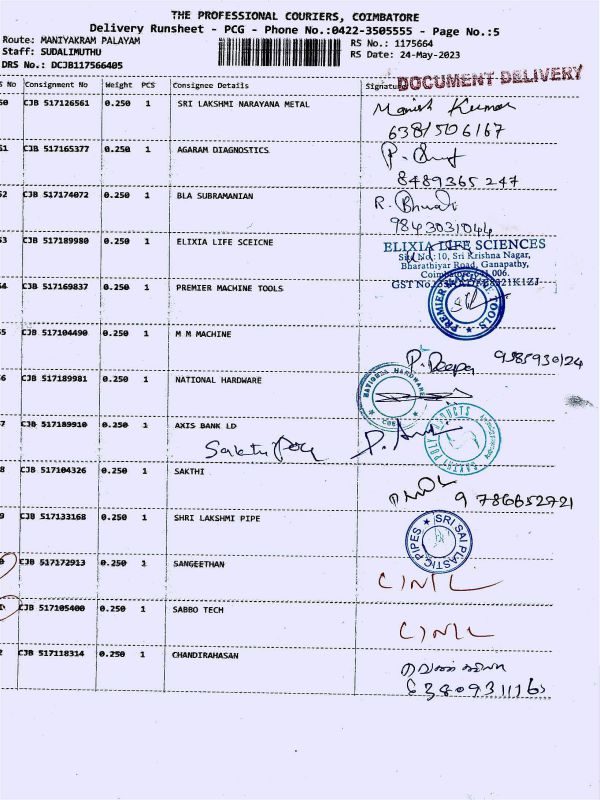 THE PROFESSIONAL COURIERS, COIMBATORE
Delivery Runsheet - PCG - Phone No.:0422-3505555 - Page No.:5
Route: MANIYAKRAM PALAYAM
RS No.: 1175664
Staff: SUDALIMUTHU
RS Date: 24-May-2023
DRS No.: DCJB117566405
DOCUMENT DELIVERY
S No Consignment No Weight PCS Consignee Details Signature
50 CJB 517126561 0.250 1 SRI LAKSHMI NARAYANA METAL Manish Kumar
6381506167
51 CJB 517165377 0.250 1 AGARAM DIAGNOSTICS P.
8489365247
52 CJB 517174072 0.250 1 BLA SUBRAMANIAN R.
9843031044
53 CJB 517189980 0.250 1 ELIXIA LIFE SCEICNE ELIXIA LIFE SCIENCES
Site No.:10, Sri Krishna Nagar,
Bharathiyar Road, Ganapathy,
Coimbatore-641 006.
GST No
54 CJB 517169837 0.250 1 PREMIER MACHINE TOOLS PREMIER MACHINE TOOLS
55 CJB 517104490 0.250 1 M M MACHINE P. Deepa 9385930124
56 CJB 517189981 0.250 1 NATIONAL HARDWARE NATIONAL HARDWARE
57 CJB 517189910 0.250 1 AXIS BANK LD
Sakthi Poly SAKTHI POLY PRODUCTS
58 CJB 517104326 0.250 1 SAKTHI
9786652721
59 CJB 517133168 0.250 1 SHRI LAKSHMI PIPE SRI SAI PLASTIC PIPES
0 CJB 517172913 0.250 1 SANGEETHAN
C/N/L
CJB 517105400 0.250 1 SABBO TECH
C/N/L
2 CJB 517118314 0.250 1 CHANDIRAHASAN
6380931116